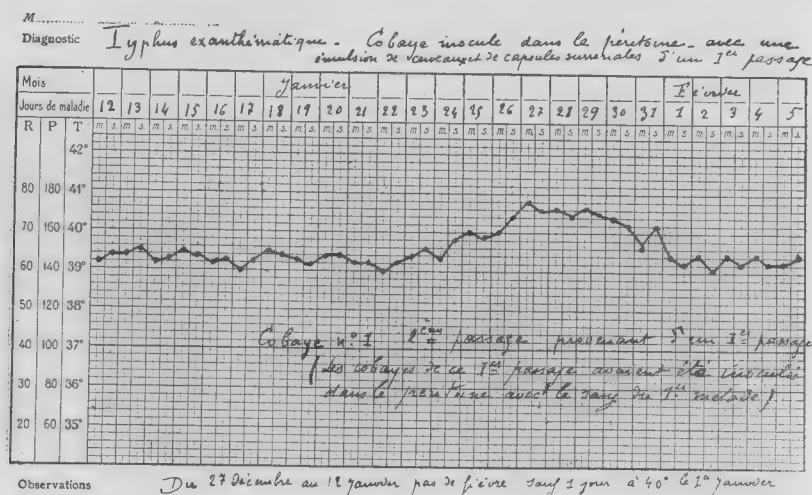 M
Diagnostic Typhus exanthématique - Cobaye inocule dans le péritoine - avec une
émulsion de cerveaux et de capsules surrenales d'un 1er passage
Mois Janvier Février
Jours de maladie 12 13 14 15 16 17 18 19 20 21 22 23 24 25 26 27 28 29 30 31 1 2 3 4 5
R P T m. s. m. s. m. s. m. s. m. s. m. s. m. s. m. s. m. s. m. s. m. s. m. s. m. s. m. s. m. s. m. s. m. s. m. s. m. s. m. s. m. s. m. s. m. s. m. s. m. s.
42°
80 180 41°
70 160 40°
60 140 39°
50 120 38°
40 100 37°
30 80 36°
20 60 35°
Cobaye n° 1 2ème passage provenant d'un 1er passage
(Les cobayes de ce 1er passage avaient été inoculés
dans le peritoine avec le sang du 1er malade)
Observations Du 27 Décembre au 12 Janvier pas de fièvre sauf 1 jour à 40° le 1er Janvier